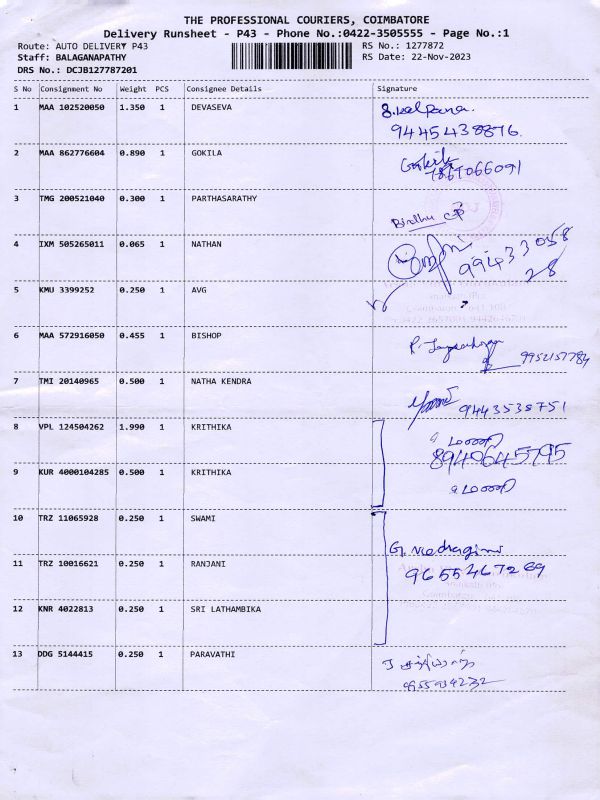 THE PROFESSIONAL COURIERS, COIMBATORE
Delivery Runsheet - P43 - Phone No.:0422-3505555 - Page No.:1
Route: AUTO DELIVERY P43 RS No.: 1277872
Staff: BALAGANAPATHY RS Date: 22-Nov-2023
DRS No.: DCJB127787201
S No Consignment No Weight PCS Consignee Details Signature
1 MAA 102520050 1.350 1 DEVASEVA S. Kalpana.
9445438876.
2 MAA 862776604 0.890 1 GOKILA Gokila
7867066091
3 TMG 200521040 0.300 1 PARTHASARATHY
Bindhu
4 IXM 505265011 0.065 1 NATHAN 99433058
28
5 KMU 3399252 0.250 1 AVG
6 MAA 572916050 0.455 1 BISHOP
9952157784
7 TMI 20140965 0.500 1 NATHA KENDRA 9443538751
8 VPL 124504262 1.990 1 KRITHIKA
8940645795
9 KUR 4000104285 0.500 1 KRITHIKA
10 TRZ 11065928 0.250 1 SWAMI
11 TRZ 10016621 0.250 1 RANJANI 9655467269
12 KNR 4022813 0.250 1 SRI LATHAMBIKA
13 DDG 5144415 0.250 1 PARAVATHI